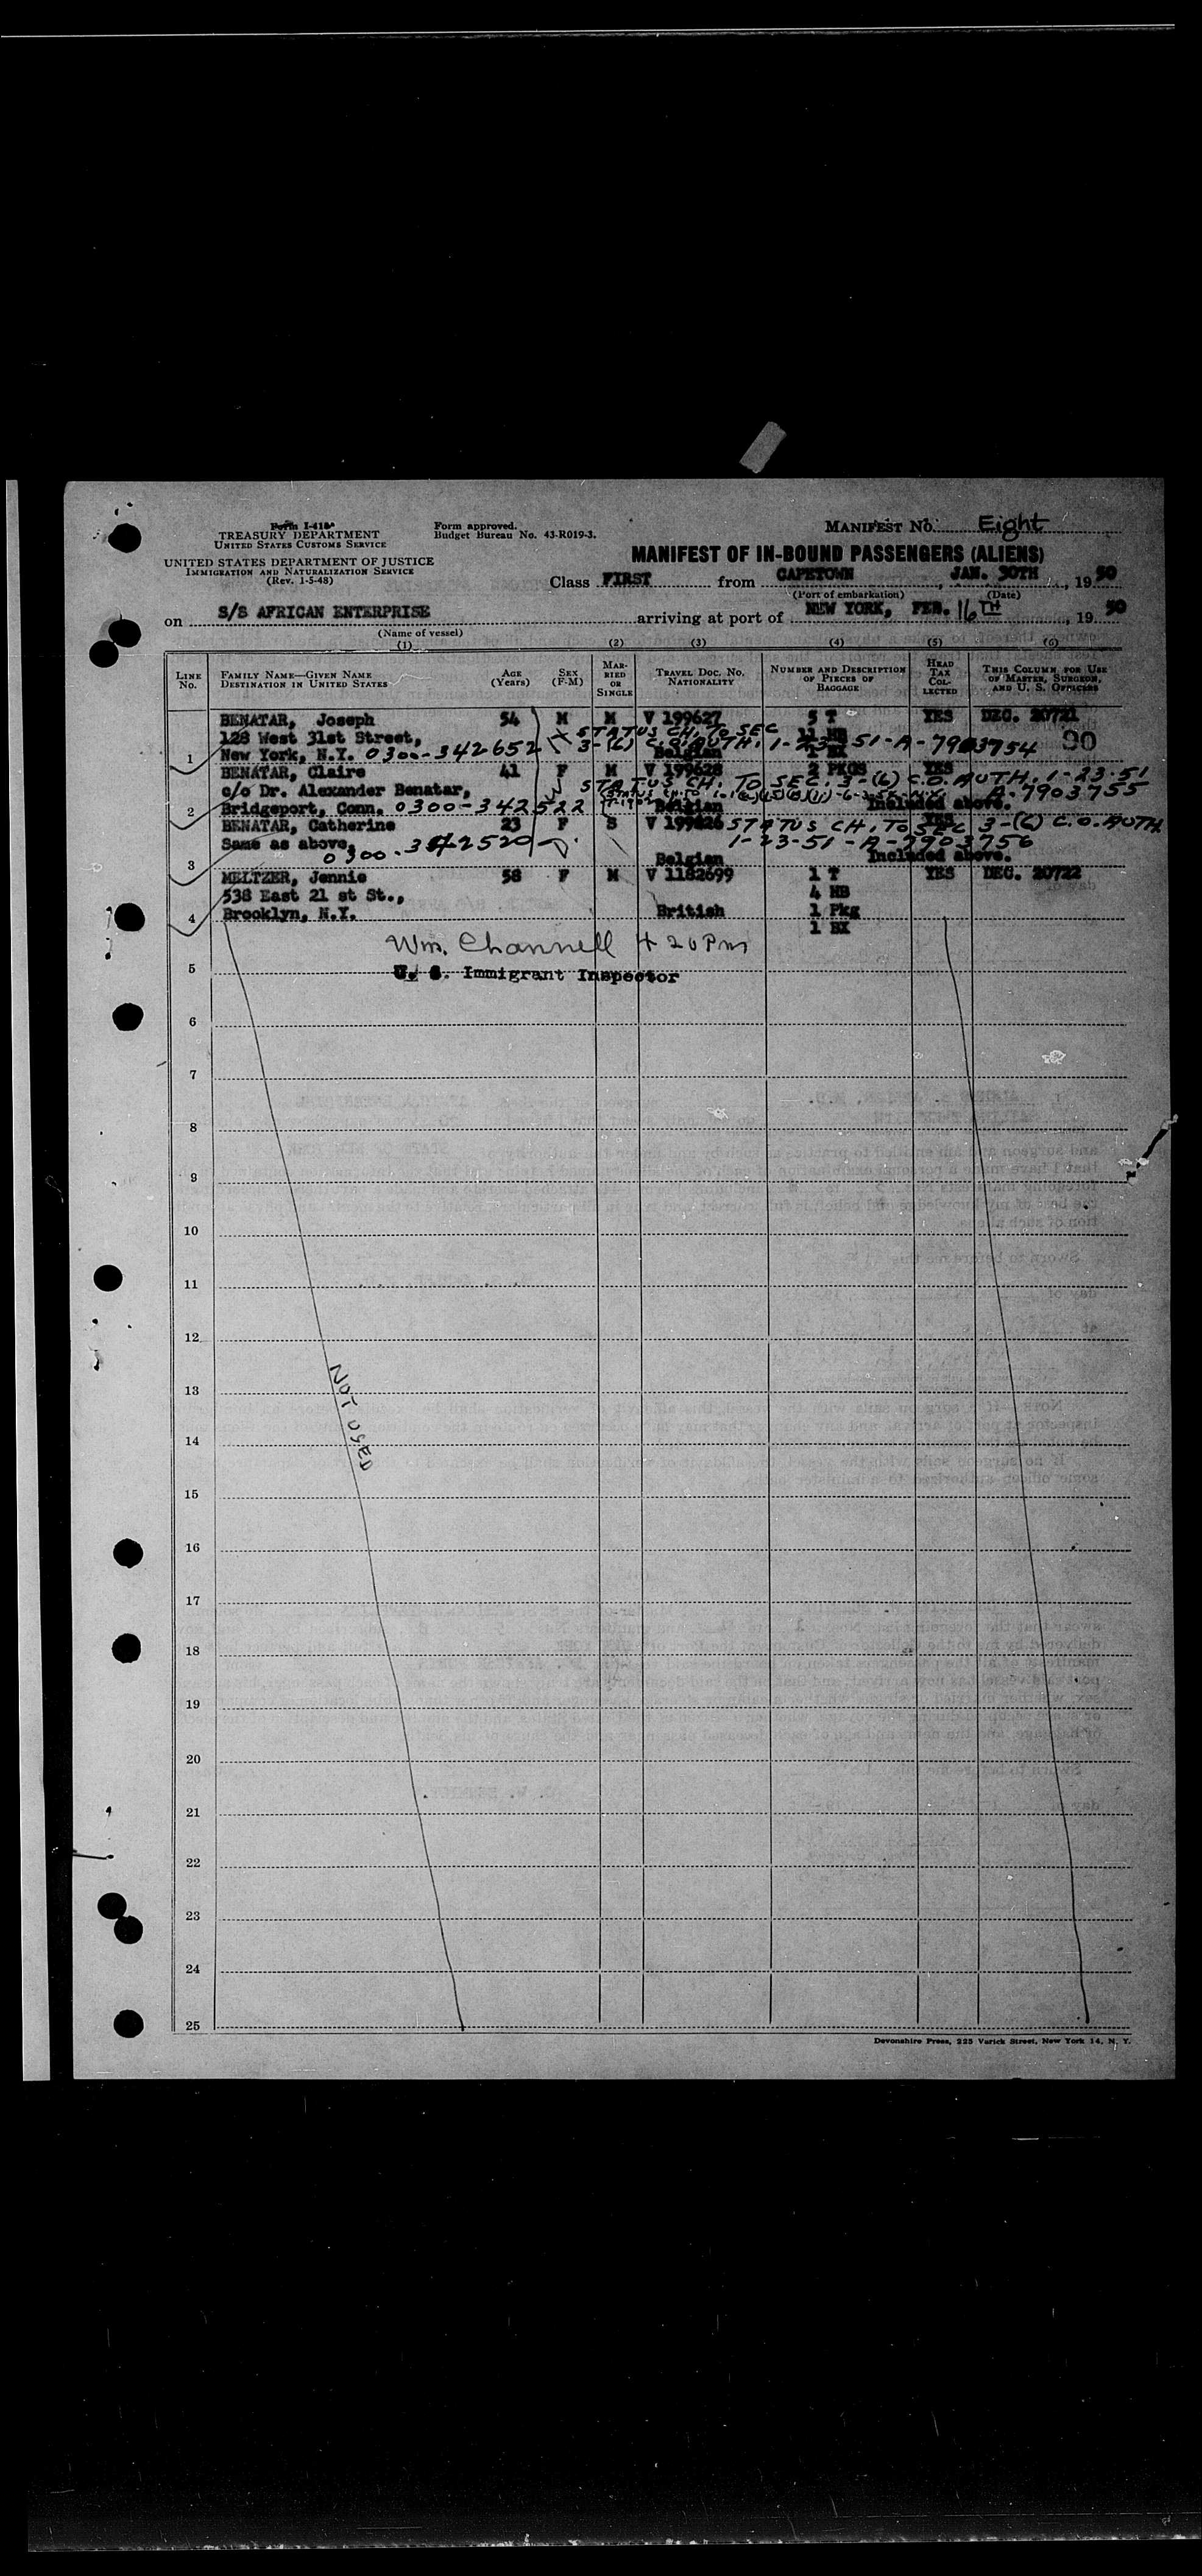 Form I-415
TREASURY DEPARTMENT
UNITED STATES CUSTOMS SERVICE
UNITED STATES DEPARTMENT OF JUSTICE
IMMIGRATION AND NATURALIZATION SERVICE
(Rev. 1-5-48)
Form approved.
Budget Bureau No. 43-R019-3.
MANIFEST NO. Eight
MANIFEST OF IN-BOUND PASSENGERS (ALIENS)
Class FIRST from CAPETOWN, JAN. 30TH, 1950
(Port of embarkation) (Date)
on S/S AFRICAN ENTERPRISE arriving at port of NEW YORK, FEB. 16TH, 1950
(Name of vessel)
(1) (2) (3) (4) (5) (6)
LINE NO. FAMILY NAME—GIVEN NAME DESTINATION IN UNITED STATES AGE (YEARS) SEX (F-M) MARRIED OR SINGLE TRAVEL DOC. NO. NATIONALITY NUMBER AND DESCRIPTION OF PIECES OF BAGGAGE HEAD TAX COLLECTED THIS COLUMN FOR USE OF MASTER, SURGEON, AND U. S. OFFICERS
BENATAR, Joseph 54 M M V 199627 5 T YES DEC. 20721
128 West 31st Street, STATUS CH. TO SEC 11 HB 90
1 New York, N.Y. 0300-342652 3-(6) C.O. AUTH. 1-23-51-A-7903754 Belgian 1 BX
BENATAR, Claire 41 F M V 199628 2 PKGS YES
c/o Dr. Alexander Benatar, STATUS CH. TO SEC. 3-(6) C.O. AUTH. 1-23-51
A-7903755
2 Bridgeport, Conn. 0300-342522 Belgian Included above.
BENATAR, Catherine 23 F S V 199626 YES STATUS CH. TO SEC 3-(6) C.O. AUTH
Same as above, 1-23-51-A-7903756
3 0300-342520 Belgian Included above.
MELTZER, Jennie 58 F M V 1182699 1 T YES DEC. 20722
538 East 21 st St., 4 HB
4 Brooklyn, N.Y. British 1 Pkg
1 BX
Wm. Channell 420 Pm
5 U. S. Immigrant Inspector
6
7
8
9
10
11
12
13
NOT USED
14
15
16
17
18
19
20
21
22
23
24
25
Devonshire Press, 225 Varick Street, New York 14, N. Y.